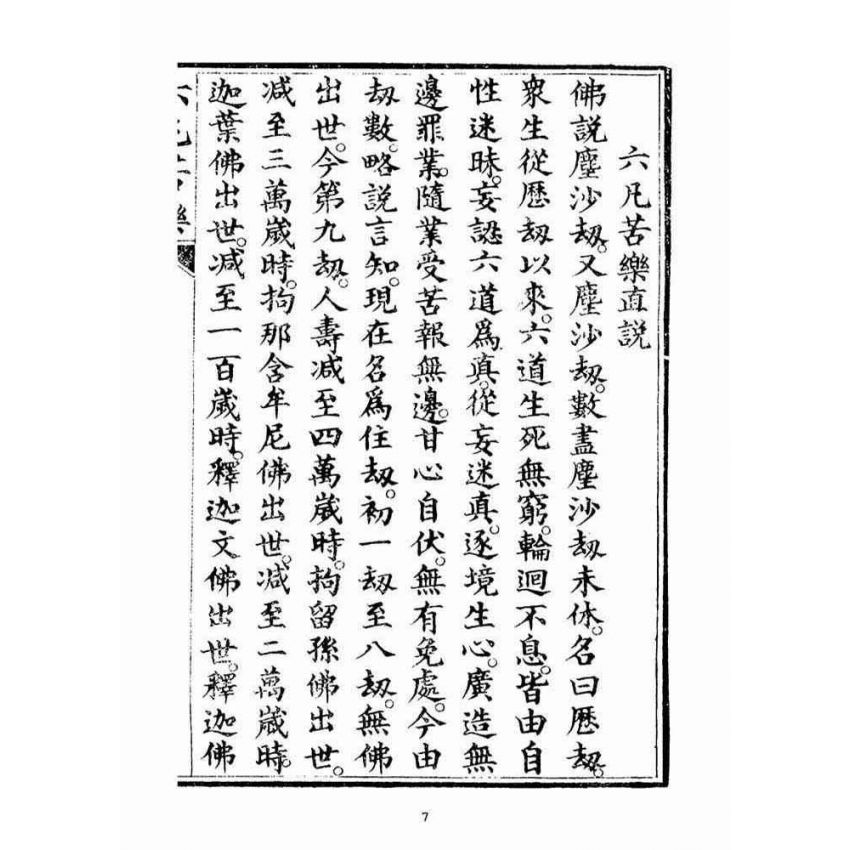 六凡苦樂直說
佛說塵沙劫。又塵沙劫。數盡塵沙劫未休。名曰歷劫。
衆生從歷劫以來。六道生死無窮。輪迴不息。皆由自
性迷昧。妄認六道爲真。從妄迷真。逐境生心。廣造無
邊罪業。隨業受苦報無邊。甘心自伏。無有免處。今由
劫數。略說言知。現在名爲住劫。初一劫至八劫。無佛
出世。今第九劫。人壽减至四萬歲時。拘留孫佛出世。
减至三萬歲時。拘那含牟尼佛出世。减至二萬歲時。
迦葉佛出世。减至一百歲時。釋迦文佛出世。釋迦佛
六凡苦樂
7